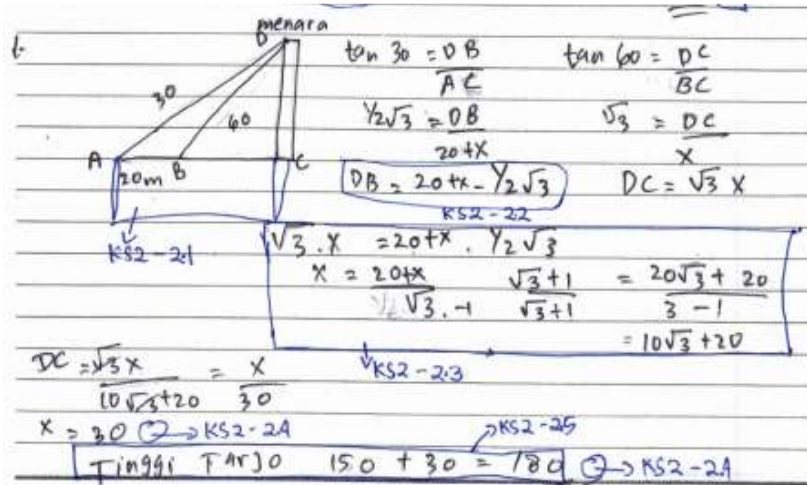 menara
1.
D
30
60
A
B
C
20m
KS2-2.1
tan 30 = DB / AC
1/2√3 = DB / 20+x
DB = 20+x - 1/2√3
KS2-2.2
tan 60 = DC / BC
√3 = DC / x
DC = √3 x
√3 . x = 20+x . 1/2√3
x = 20+x / √3 . -1 √3+1 / √3+1 = 20√3 + 20 / 3 - 1
= 10√3 + 20
KS2-2.3
DC = √3 x / 10√3+20 = x / 30
x = 30 → KS2-2A
KS2-25
Tinggi Tarjo 150 + 30 = 180 → KS2-2A